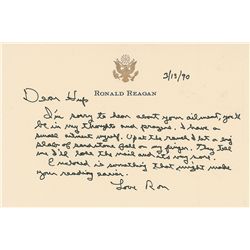 RONALD REAGAN
3/13/90
Dear Hup
I'm sorry to hear about your ailment, you'll
be in my thoughts and prayers. I have a
small ailment myself. Up at the ranch I let a big
slab of sandstone fall on my finger. They tell
me I'll lose the nail and it's very sore.
Enclosed is something that might make
your reading easier.
Love Ron